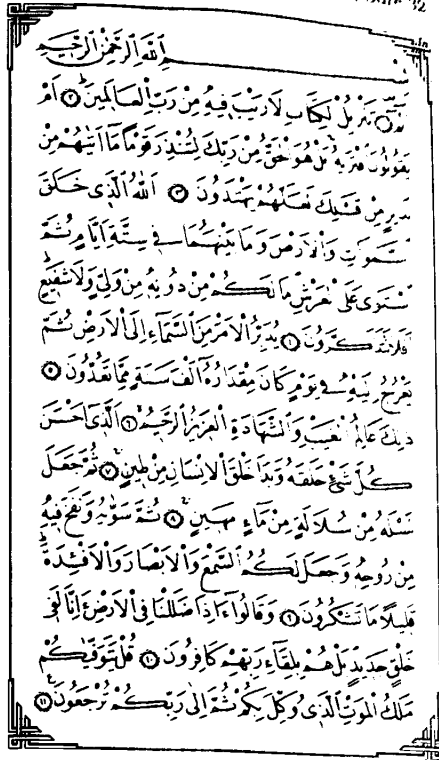 32
بسم الله الرحمن الرحيم
الم ۝١ تنزيل الكتاب لا ريب فيه من رب العالمين ۝٢ ام
يقولون افتريه بل هو الحق من ربك لتنذر قوما ما اتيهم من
نذير من قبلك لعلهم يهتدون ۝٣ الله الذي خلق
السموات والارض وما بينهما في ستة ايام ثم
استوى على العرش ما لكم من دونه من ولي ولا شفيع
افلا تتذكرون ۝٤ يدبر الامر من السماء الى الارض ثم
يعرج اليه في يوم كان مقداره الف سنة مما تعدون ۝٥
ذلك عالم الغيب والشهادة العزيز الرحيم ۝٦ الذي احسن
كل شيء خلقه وبدا خلق الانسان من طين ۝٧ ثم جعل
نسله من سلالة من ماء مهين ۝٨ ثم سويه ونفخ فيه
من روحه وجعل لكم السمع والابصار والافئدة
قليلا ما تشكرون ۝٩ وقالوا ءاذا ضللنا في الارض ءانا لفي
خلق جديد بل هم بلقاء ربهم كافرون ۝١٠ قل يتوفيكم
ملك الموت الذي وكل بكم ثم الى ربكم ترجعون ۝١١